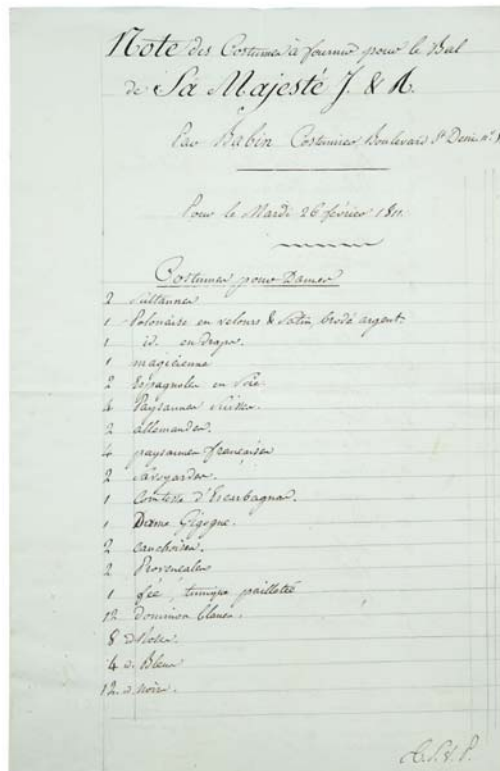 Note des Costumes à fournir pour le Bal
de Sa Majesté J. & R.
Par Babin Costumier Boulevard St Denis n.°
Pour le Mardi 26 février 1811.
Costumes pour Dames
2 Sultannes
1 Polonaise en velours & Satin, brodé argent.
1 id. en drap.
1 magicienne
2 Espagnoles en Soie
4 Paysannes Suisses
2 allemandes.
4 paysannes françaises
2 savoyardes.
1 Comtesse d'Escarbagnas.
1 Dame Gigogne.
2 cauchoises.
2 Provencales
1 fée, tunique pailleté
12 dominos blancs.
8 d
4 d. Bleus
12 d. noirs.
T.S.V.P.